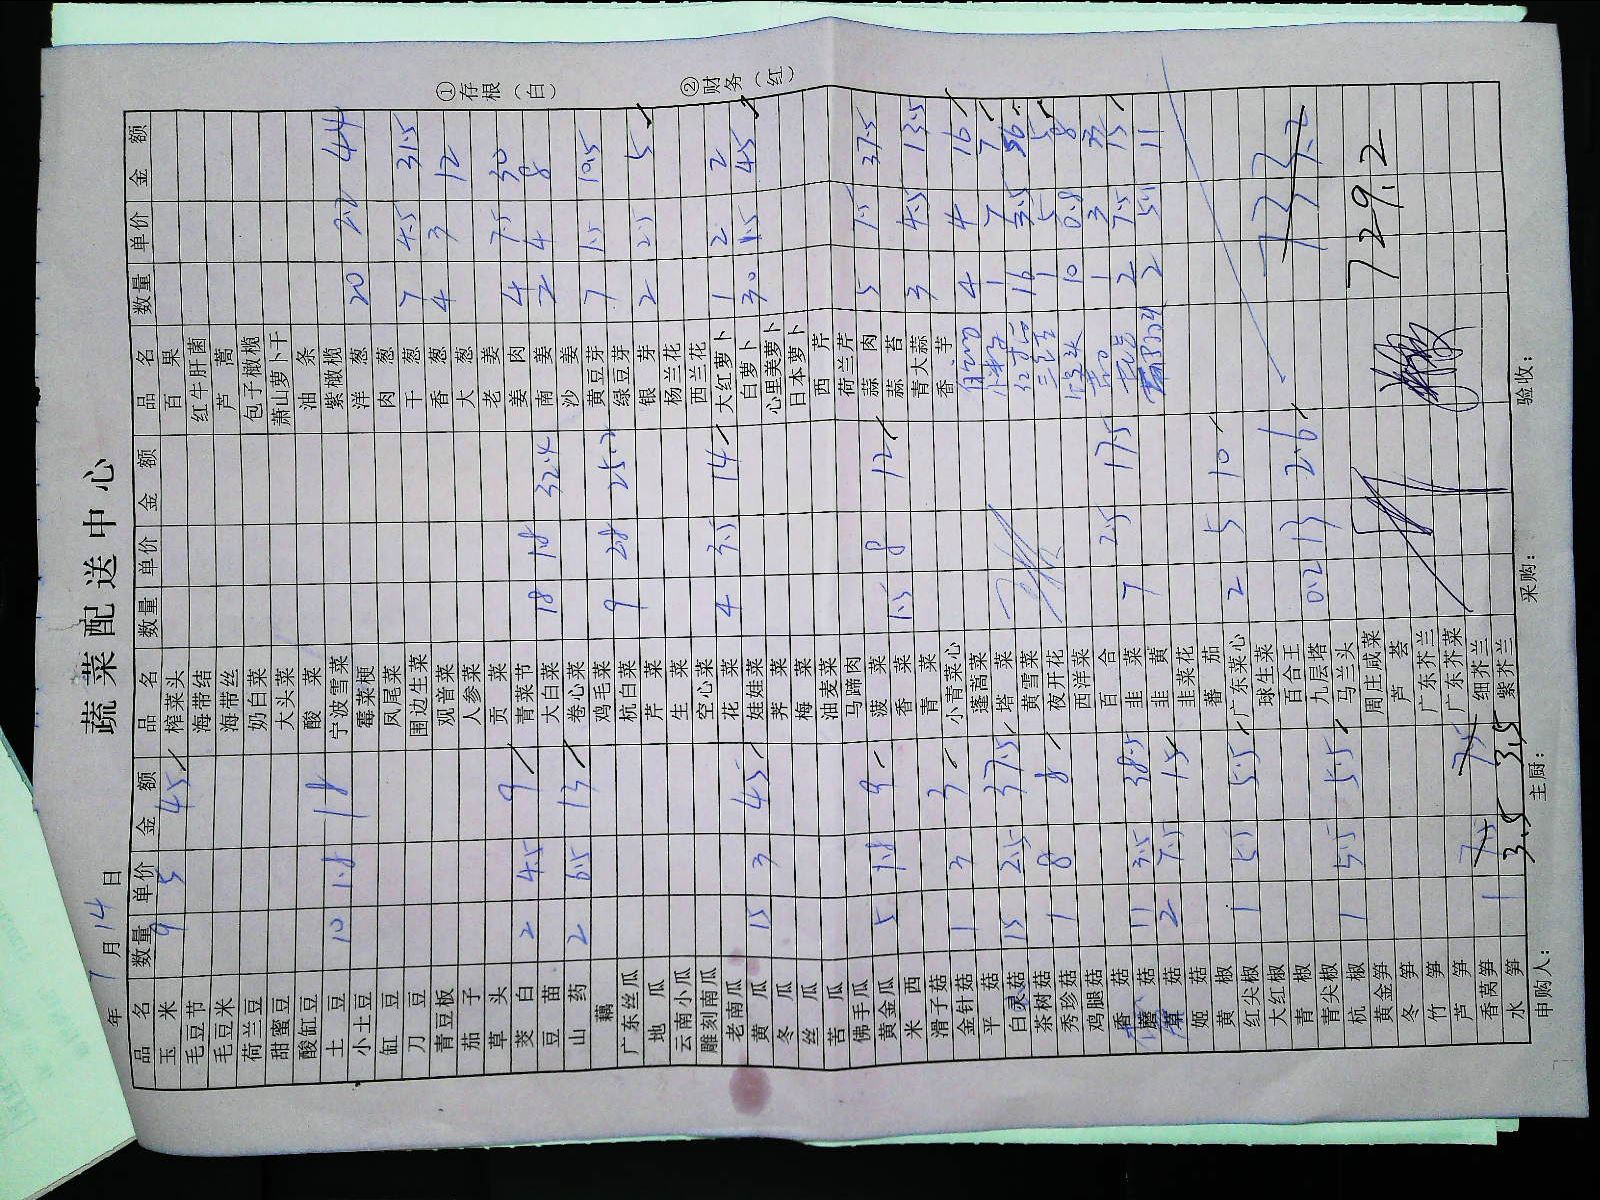 蔬菜配送中心
年 7 月 14 日
①存根（白） ②财务（红）
品名 数量 单价 金额 品名 数量 单价 金额 品名 数量 单价 金额
玉米 9 5 45 榨菜头 百果
毛豆节 海带结 红牛肝菌
毛豆米 海带丝 芦蒿
荷兰豆 奶白菜 包子橄榄
甜蜜豆 大头菜 萧山萝卜干
酸缸豆 酸菜 油条
土豆 10 1.8 18 宁波雪菜 紫橄榄
小土豆 霉菜梗 洋葱 20 2.2 44
缸豆 凤尾菜 肉葱
刀豆 围边生菜 干葱 7 4.5 31.5
青豆板 观音菜 香葱 4 3 12
茄子 人参菜 大葱
草头 贡菜 老姜 4 7.5 30
茭白 2 4.5 9 青菜节 姜肉 2 4 8
豆苗 大白菜 18 1.8 32.4 南姜
山药 2 6.5 13 卷心菜 沙姜
藕 鸡毛菜 9 2.8 25.2 黄豆芽 7 1.5 10.5
广东丝瓜 杭白菜 绿豆芽
地瓜 芹菜 银芽 2 2.5 5
云南小瓜 生菜 杨兰花
雕刻南瓜 空心菜 西兰花
老南瓜 花菜 4 3.5 14 大红萝卜 1 2 2
黄瓜 15 3 45 娃娃菜 白萝卜 30 1.5 45
冬瓜 荠菜 心里美萝卜
丝瓜 梅菜 日本萝卜
苦瓜 油麦菜 西芹
佛手瓜 马蹄肉 荷兰芹
黄金瓜 5 1.8 9 菠菜 1.5 8 12 蒜肉 5 7.5 37.5
米西 香菜 蒜苔
滑子菇 青菜 青大蒜 3 4.5 13.5
金针菇 1 3 3 小青菜心 香芋
平菇 蓬蒿菜 4 4 16
白灵菇 15 2.5 37.5 塔菜 1 7 7
茶树菇 黄雪菜 16 3.5 56
秀珍菇 1 8 8 夜开花 1 5 5
鸡腿菇 西洋菜 10 0.8 8
香菇 百合 1 3 3
蘑菇 11 3.5 38.5 韭菜 7 2.5 17.5 2 7.5 15
草菇 2 7.5 15 韭黄 2 5.5 11
姬菇 韭菜花
黄椒 蕃茄
红尖椒 1 5.5 5.5 广东菜心 2 5 10
大红椒 球生菜
青椒 百合王
青尖椒 九层塔 0.2 13 2.6
杭椒 1 5.5 5.5 马兰头
黄金笋 周庄咸菜
冬笋 芦荟
竹笋 广东芥兰
芦笋 广东芥菜
香莴笋 1 7.5 7.5 细芥兰
水笋 3.5 3.5 紫芥兰
733.2
729.2
申购人： 主厨： 采购： 验收：